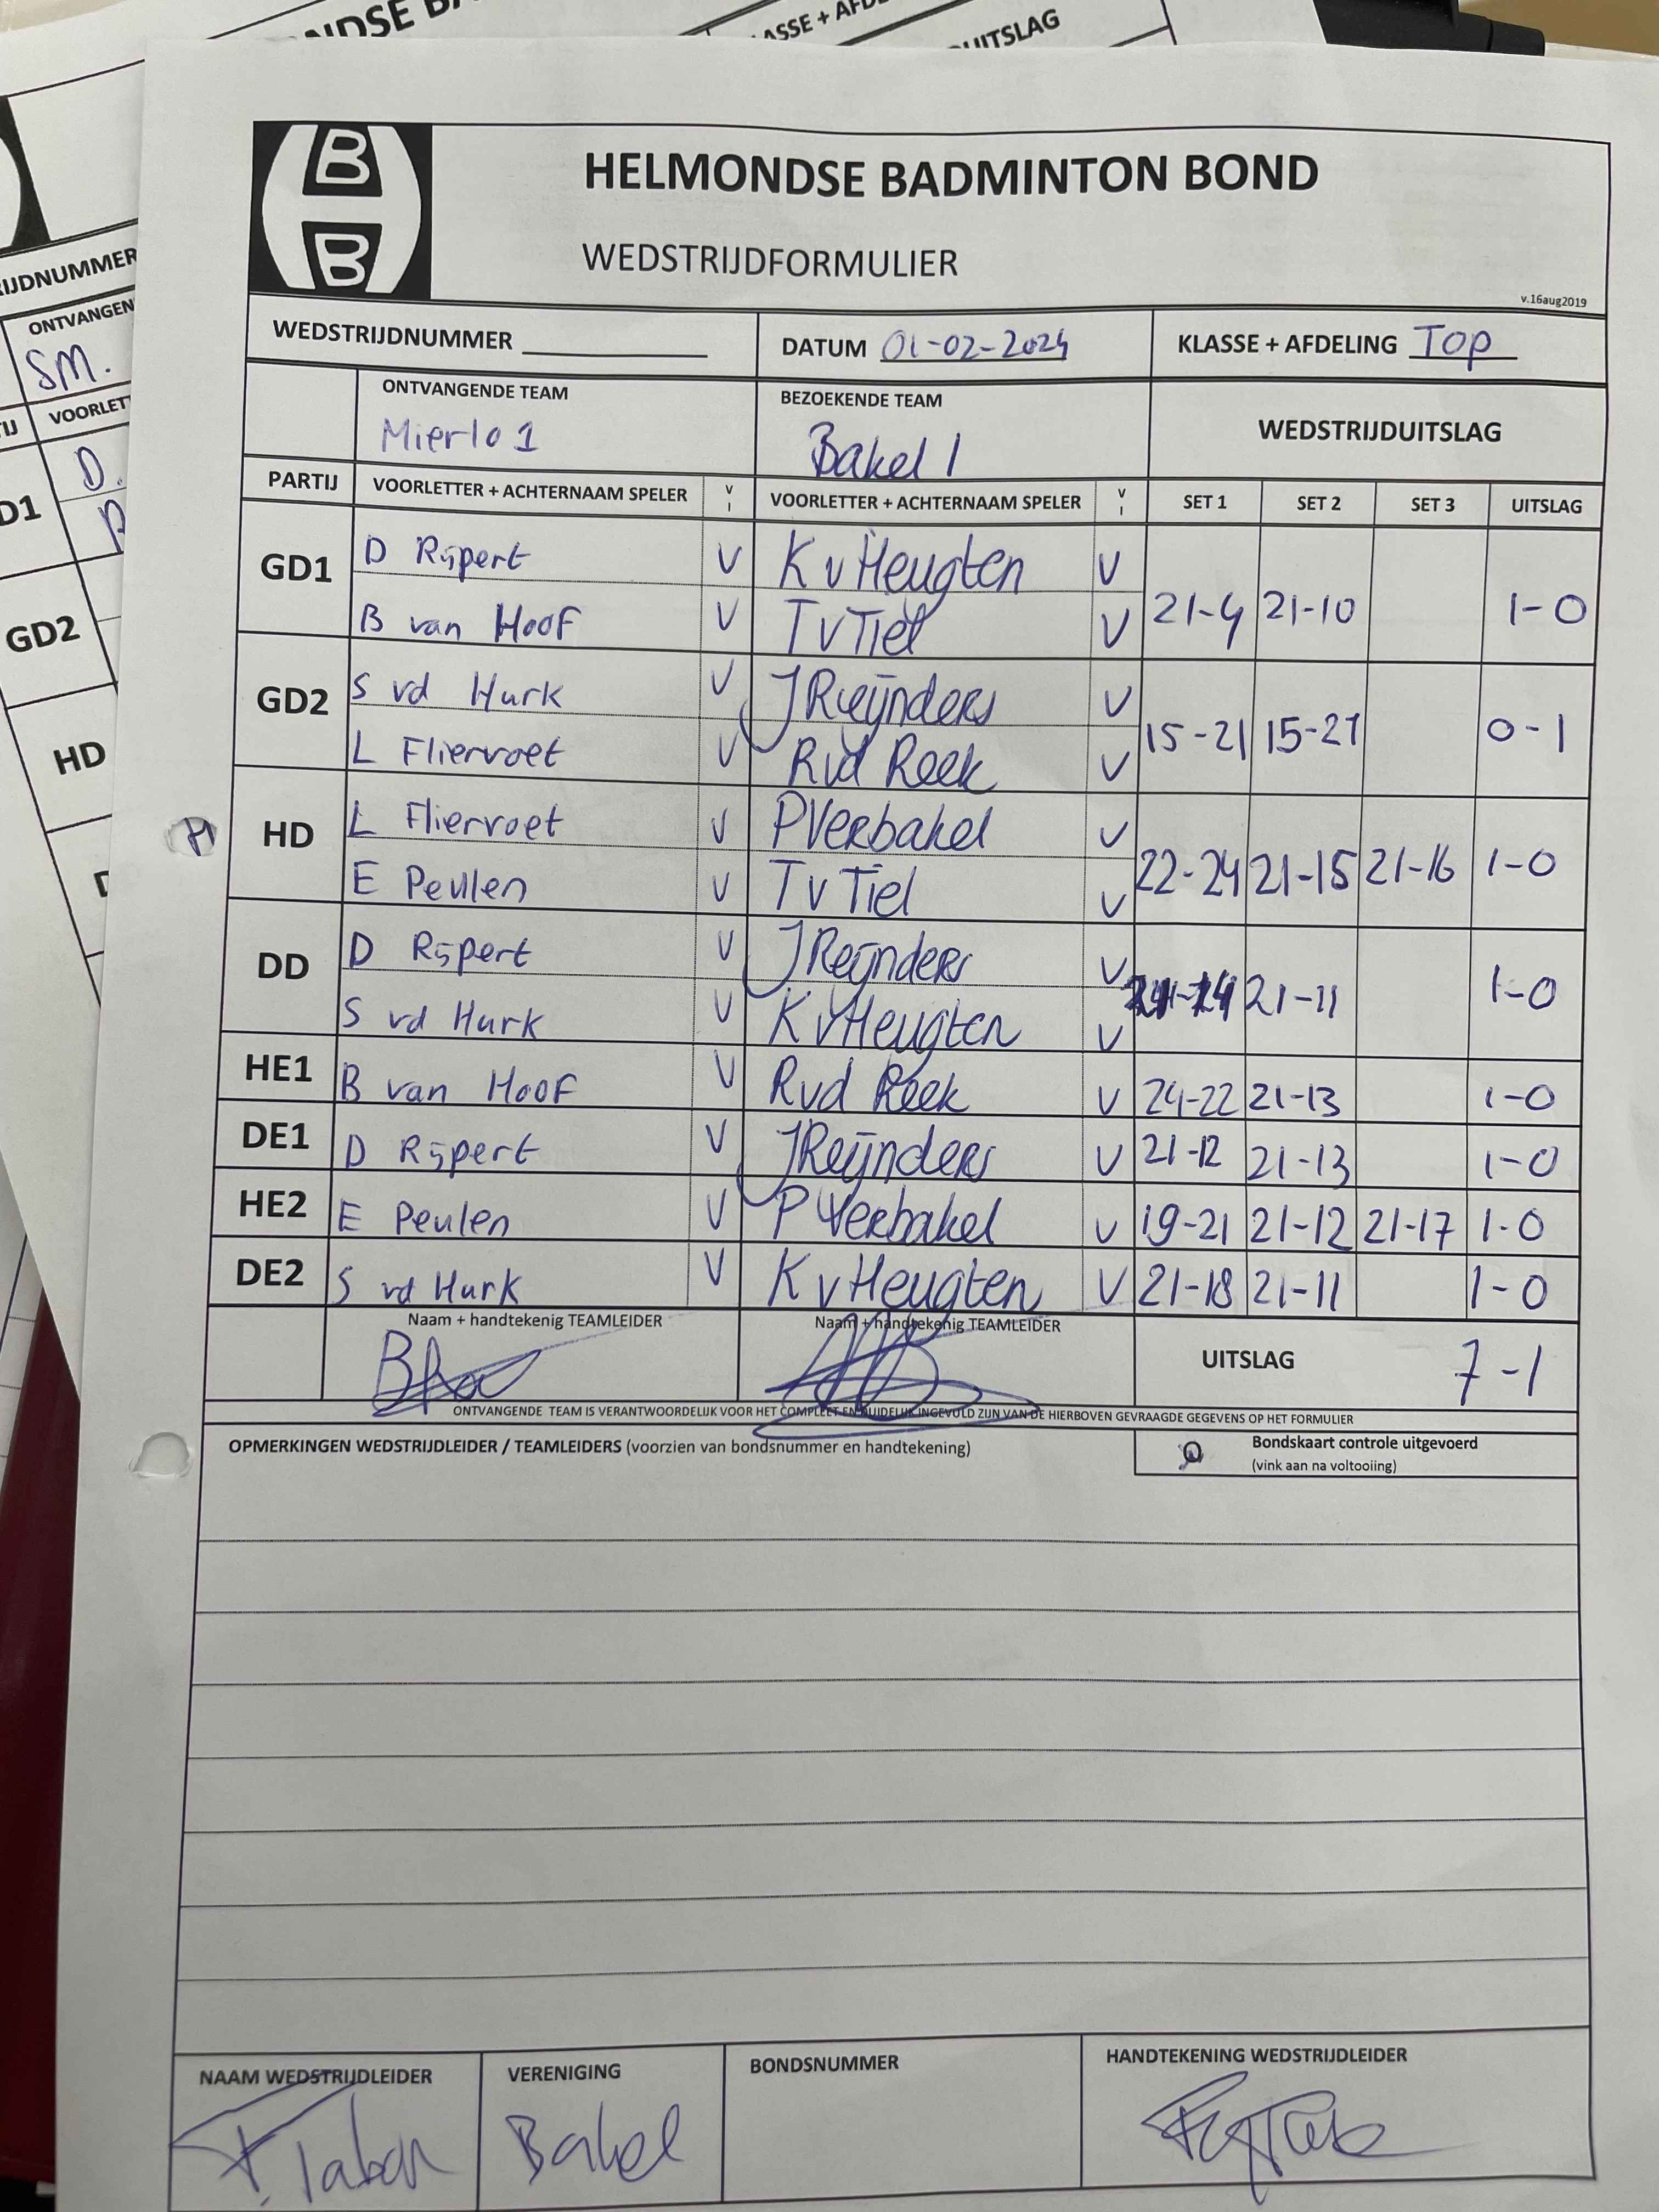 NDSE BA
ASSE + AFD
UITSLAG
B
B
HELMONDSE BADMINTON BOND
WEDSTRIJDFORMULIER
v.16aug2019
WEDSTRIJDNUMMER
DATUM 01-02-2024
KLASSE + AFDELING Top
ONTVANGENDE TEAM
Mierlo 1
BEZOEKENDE TEAM
Bakel 1
WEDSTRIJDUITSLAG
PARTIJ VOORLETTER + ACHTERNAAM SPELER V I VOORLETTER + ACHTERNAAM SPELER V I SET 1 SET 2 SET 3 UITSLAG
GD1 D Rijpert V K v Heugten V
B van Hoof V T v Tiel V 21-4 21-10 1-0
GD2 S vd Hurk V J Reijnders V
L Fliervoet V R vd Reek V 15-21 15-21 0-1
HD L Fliervoet V P Verbakel V
E Peulen V T v Tiel V 22-24 21-15 21-16 1-0
DD D Rijpert V J Reijnders V
S vd Hurk V K v Heugten V 21-11 1-0
HE1 B van Hoof V R vd Reek V 24-22 21-13 1-0
DE1 D Rijpert V J Reijnders V 21-12 21-13 1-0
HE2 E Peulen V P Verbakel V 19-21 21-12 21-17 1-0
DE2 S vd Hurk V K v Heugten V 21-18 21-11 1-0
Naam + handtekenig TEAMLEIDER
Naam + handtekenig TEAMLEIDER
UITSLAG 7-1
ONTVANGENDE TEAM IS VERANTWOORDELIJK VOOR HET COMPLEET EN DUIDELIJK INGEVULD ZIJN VAN DE HIERBOVEN GEVRAAGDE GEGEVENS OP HET FORMULIER
OPMERKINGEN WEDSTRIJDLEIDER / TEAMLEIDERS (voorzien van bondsnummer en handtekening)
Bondskaart controle uitgevoerd
(vink aan na voltooiing)
NAAM WEDSTRIJDLEIDER
VERENIGING
Bakel
BONDSNUMMER
HANDTEKENING WEDSTRIJDLEIDER
RIJDNUMMER
ONTVANGEN
SM.
IJ VOORLET
D1 D.
GD2
HD